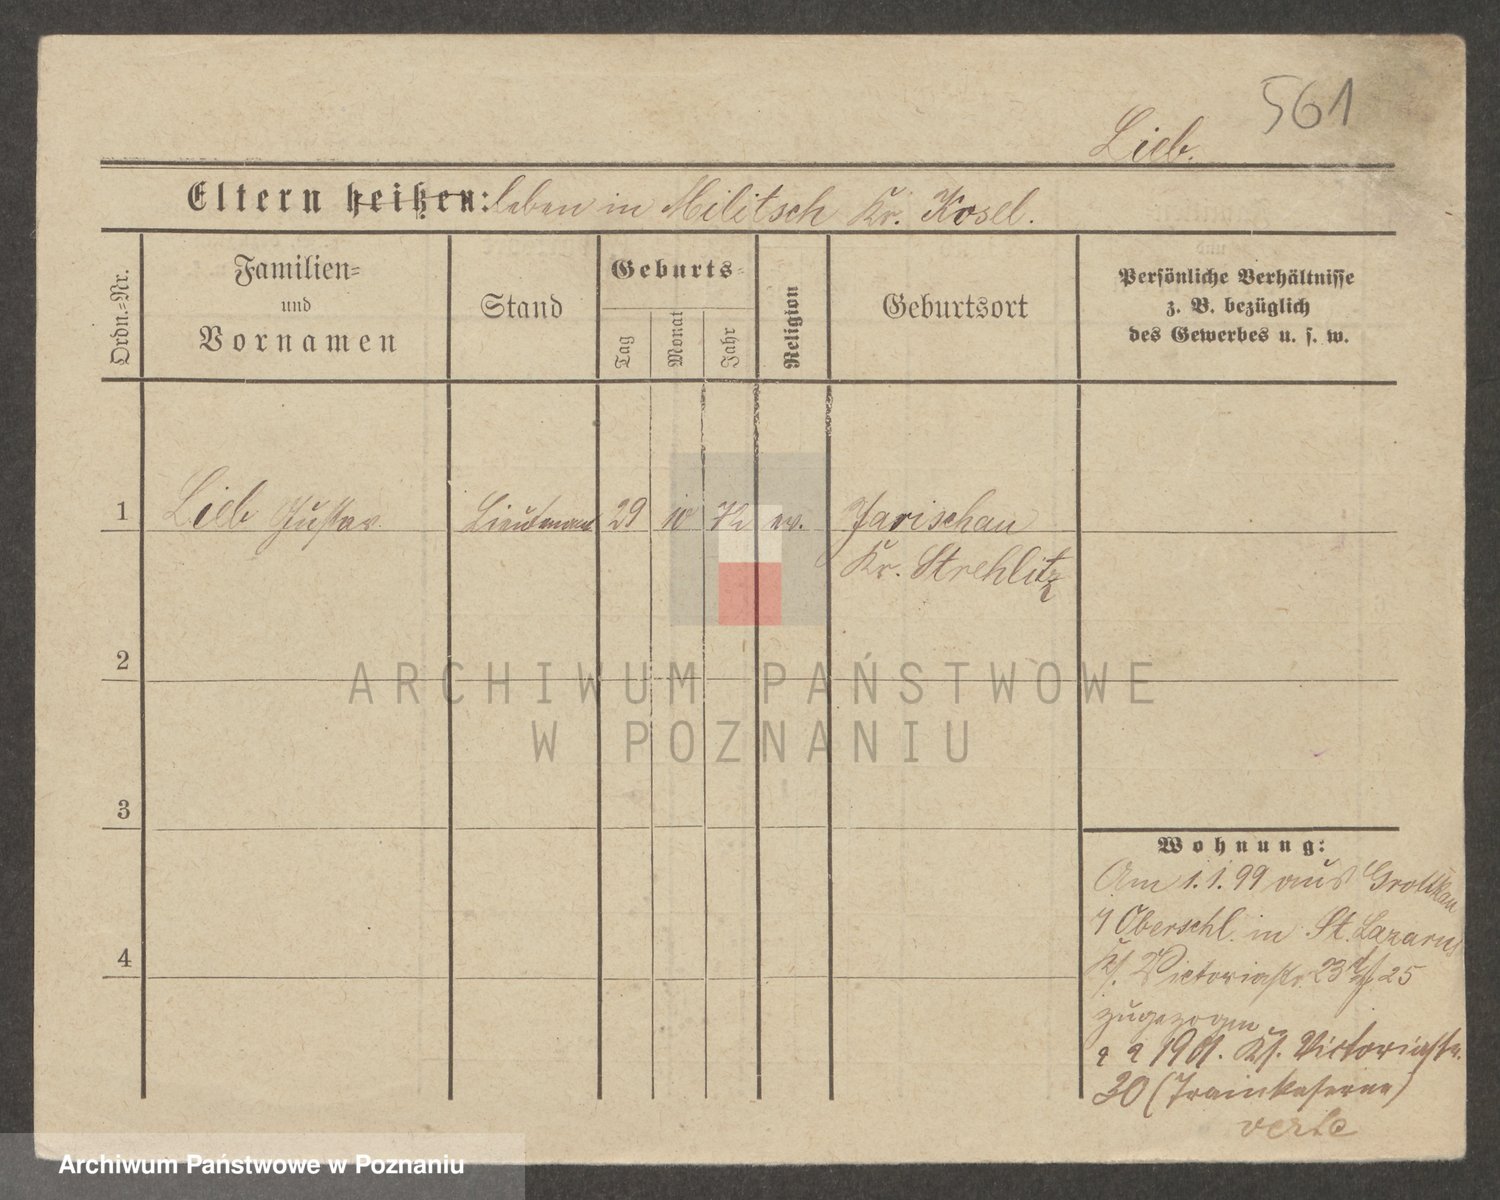 561
Lieb.
Eltern heißen: leben in Militsch Kr. Kosel.
Ordn.-Nr.
Familien-
und
Vornamen
Stand
Geburts-
Tag
Monat
Jahr
Religion
Geburtsort
Persönliche Verhältnisse
z. B. bezüglich
des Gewerbes u. s. w.
1 Lieb Gustav Lieutenant 29 10 72 ev. Jarischau
Kr. Strehlitz
2
ARCHIWUM PAŃSTWOWE
W POZNANIU
3
4
Wohnung:
Am 1.1.99 aus Grottkau
Oberschl. in St. Lazarus
Victoriastr. 23 25
zugezogen
1901. Victoriastr.
30 (Trainkaserne)
verte
Archiwum Państwowe w Poznaniu